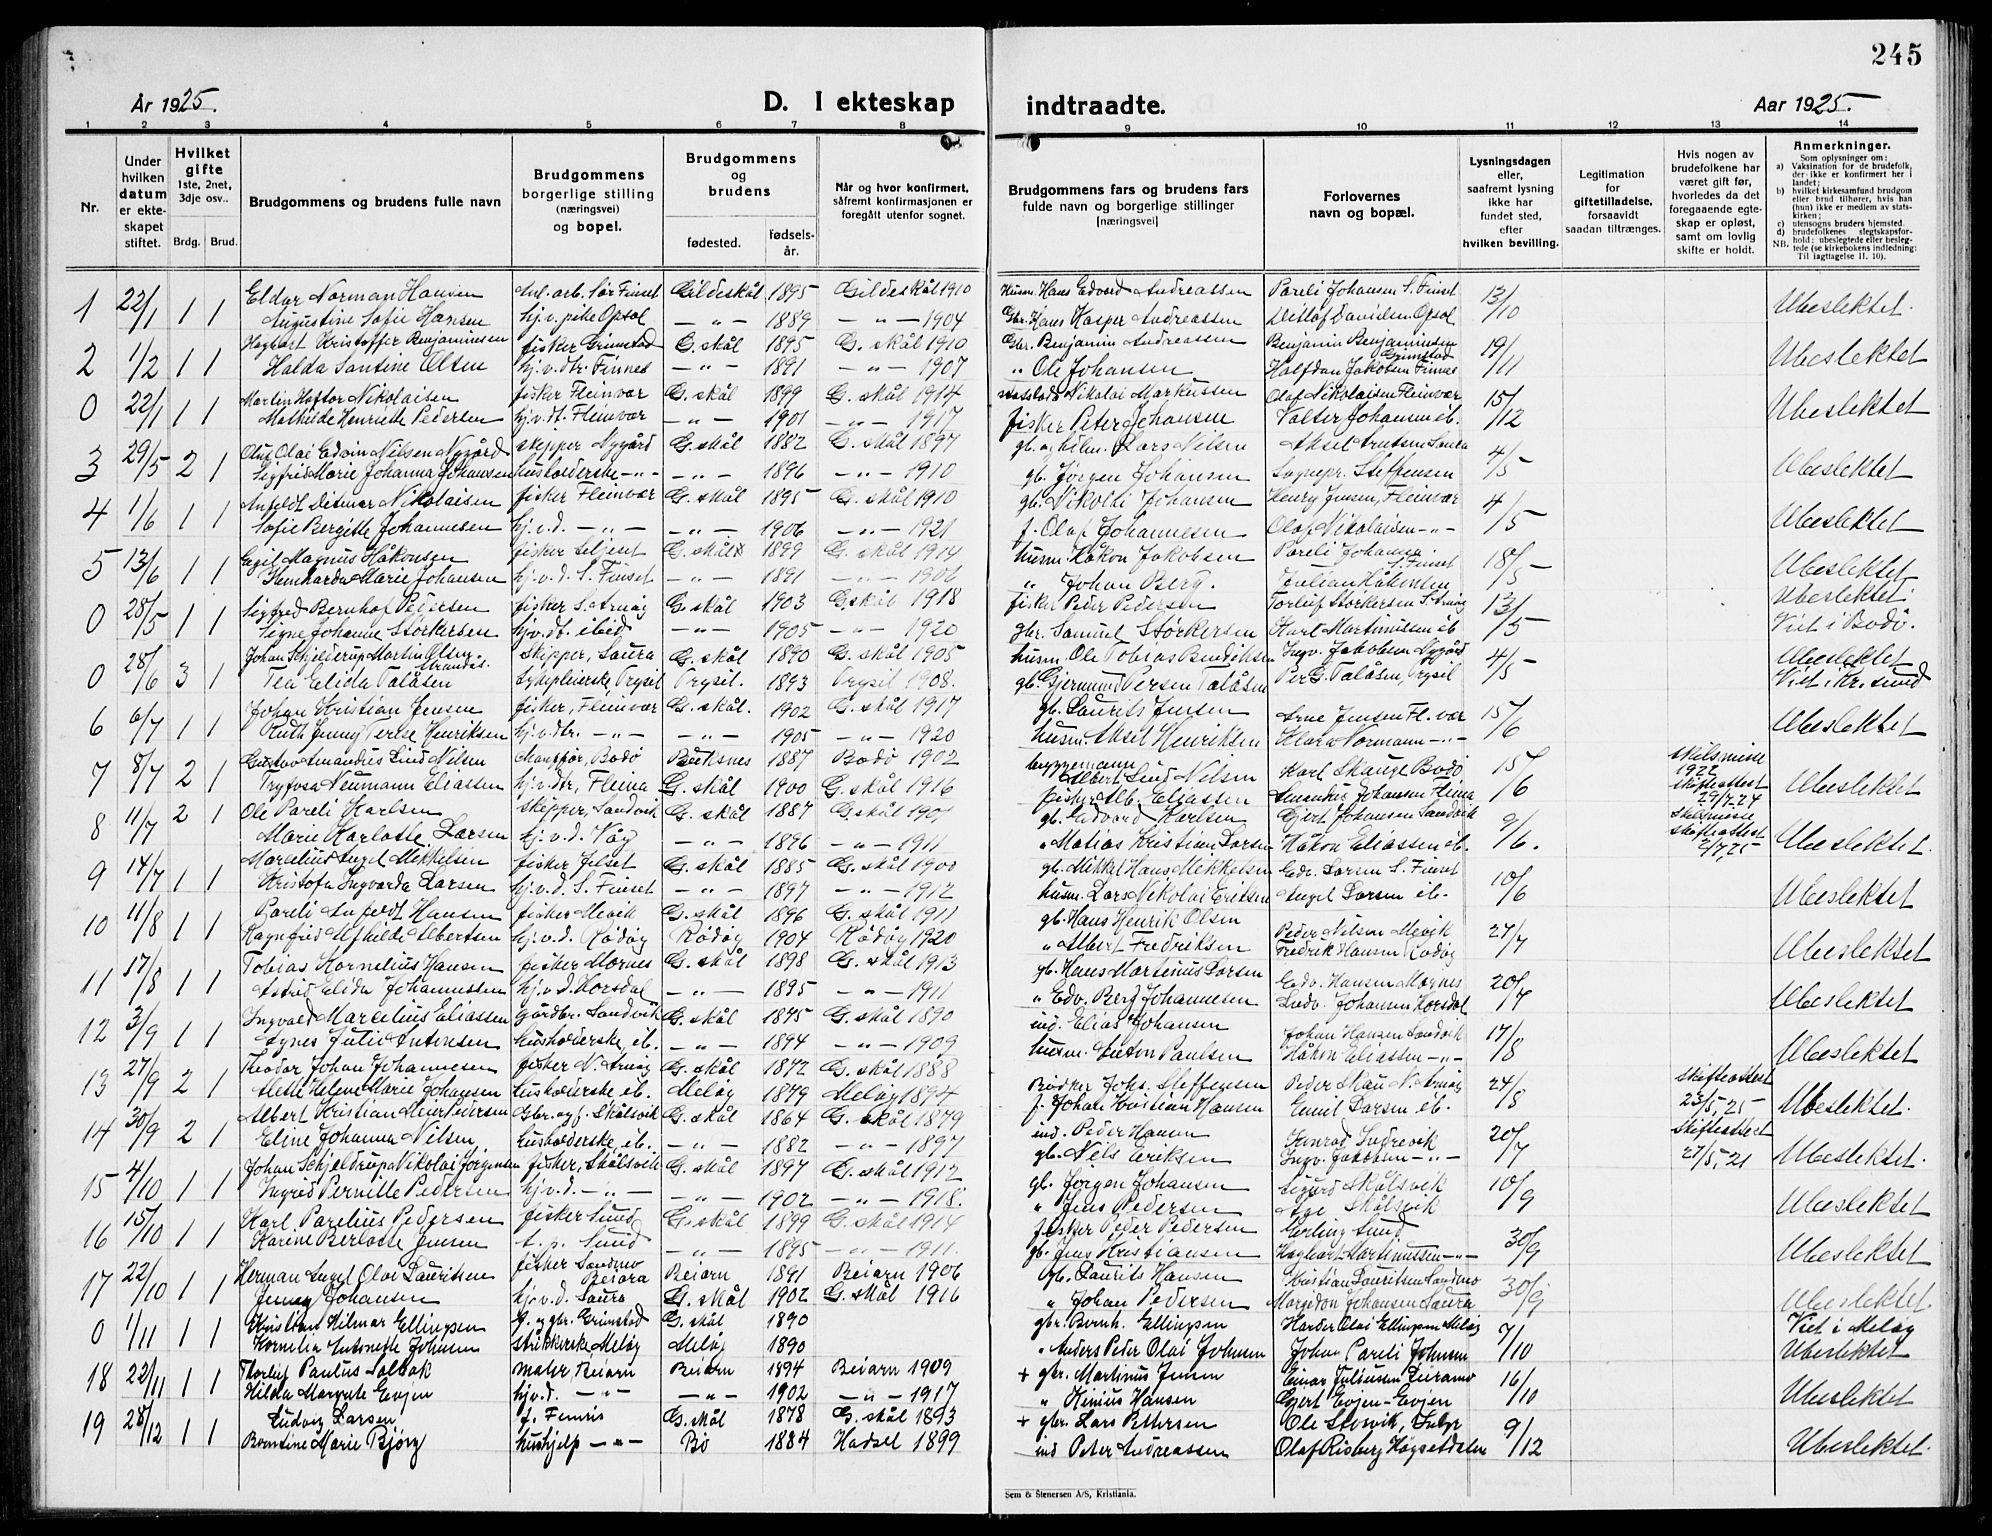 245
År 1925.
D. I ekteskap
indtraadte.
Aar 1925.
1 2 3 4 5 6 7 8 9 10 11 12 13 14
Nr.
Under hvilken datum er ekteskapet stiftet.
Hvilket gifte 1ste, 2net, 3dje osv..
Brdg. Brud.
Brudgommens og brudens fulle navn
Brudgommens borgerlige stilling (næringsvei) og bopel.
Brudgommens og brudens
fødested.
fødselsår.
Når og hvor konfirmert, såfremt konfirmasjonen er foregått utenfor sognet.
Brudgommens fars og brudens fars fulde navn og borgerlige stillinger [næringsvei]
Forlovernes navn og bopæl.
Lysningsdagen eller, saafremt lysning ikke har fundet sted, efter hvilken bevilling.
Legitimation for giftetilladelse, forsaavidt saadan tiltrænges.
Hvis nogen av brudefolkene har været gift før, hvorledes da det foregaaende egteskap er opløst, samt om lovlig skifte er holdt.
Anmerkninger.
Som oplysninger om:
a) Vaksination for de brudefolk, der ikke er konfirmert her i landet;
b) hvilket kirkesamfund brudgom eller brud tilhører, hvis han (hun) ikke er medlem av statskirken;
c) utensogns bruders hjemsted.
d) brudefolkenes slegtskapsforhold: ubeslegtede eller beslegtede (se kirkebokens indledning;
NB. Til iagttagelse II. 10).
1 22/1 1 1 Eldar Norman Hansen Sør Finset Gildeskål 1895 Gildeskål 1910 Husm. Hans Edvard Andreassen Pareli Johansen S. Finset 13/10 Ubeslektet.
Augustine Sofie Hansen Opsal -"- 1889 -"- 1904 Gbr. Hans Kasper Andreassen Ditlof Davidsen Opsal
2 1/2 1 1 Kristoffer Benjaminsen fisker Grimstad G. skål 1895 G. skål 1910 Gbr. Benjamin Andreassen Benjamin Benjaminsen Grimstad 19/11 Ubeslektet
Halda Santine Olsen hj.v.dtr. Finnes -"- 1891 -"- 1907 " Ole Johansen Halfdan Jakobsen Finnes
0 22/1 1 1 Martin Haftor Nikolaisen fisker Fleinvær G. skål 1899 G. skål 1914 Nikolai Markussen Olaf Nikolaisen Fleinvær 15/12 Ubeslektet
Mathilde Henriette Pedersen hj.v.dt. Fleinvær -"- 1901 -"- 1917 fisker Peter Johansen Valter Johansen ib.
3 29/5 2 1 Olus Olai Edvin Nilsen Nygård skipper Nygård G. skål 1882 G. skål 1897 Lars Nilsen 4/5 Ubeslektet
Sigfrid Marie Johanna Johansen husholderske -"- -"- 1896 -"- 1910 gb. Jørgen Johansen Sognepr. Steffensen
4 1/6 1 1 Anfeldt Ditmar Nikolaisen fisker Fleinvær G. skål 1895 G. skål 1910 gb. Nikolai Johansen Henry Jensen, Fleinvær 4/5 Ubeslektet
Sofie Bergitte Johannesen hj.v.d. -"- -"- 1906 -"- 1921 f. Olaf Johannesen Olaf Nikolaisen -"-
5 13/6 1 1 Egil Magnus Håkonsen fisker G. skål 1899 G. skål 1914 husm. Håkon Jakobsen Pareli Johansen S. Finset 18/5 Ubeslektet
Marie Johansen hj.v.d. S. Finset -"- 1891 -"- 1906 " Johan Berg. Julian Håkonsen
0 28/5 1 1 Sigfred Bernhof Pedersen fisker S. Arnøy G. skål 1903 G. skål 1918 fisker Peder Pedersen Torleif Störkersen S. Arnøy 13/5 Ubeslektet.
Signe Johanne Störkersen hj.v.dt. ibid -"- 1905 -"- 1920 gbr. Samuel Störkersen Karl Martinilsen ib. Viet i Bodö.
0 28/6 3 1 Johan Schjelderup Martin Olsen skipper, Saura G. skål 1890 G. skål 1905 husm. Ole Tobias Bendiksen Ingv. Jakobsen Nygård 4/5 Ubeslektet
Tea Elida Talåsen Trysil Trysil. 1893 Trysil 1908. gb. Gjermund Persen Talåsen Per G. Talåsen, Trysil Viet i Kr. sund
6 6/7 1 1 Johan Kristian Jensen fisker, Fleinvær G. skål. 1902 G. skål 1917 gb. Laurits Jensen Arne Jensen Fl. vær 15/6 Ubeslektet
Ruth Jenny Henriksen hj.v.dtr. -"- -"- 1905 -"- 1920 husm. Aksel Henriksen Klara Normann -"-
7 8/7 2 1 Gustav Amandus Lind Nilsen Bodö 1887 Bodö 1902 Albert Lind Nilsen Karl Skauge Bodö 15/6 Skilsmisse 1922 skifteattest 29/7-24 Ubeslektet
Neumann Eliassen hj.v.dtr, Fleina G. skål 1900 G. skål 1916 fisker Alb. Eliassen Amandus Johansen Fleina
8 11/7 2 1 Ole Pareli Karlsen skipper, Sandvik G. skål 1887 G. skål gb. Edvard Karlsen Gjert Johansen Sandvik 9/6. Skilsmisse skifteattest 2/7, 25 Ubeslektet.
Marie Karlotte Larsen hj.v.d. Våg -"- 1896 -"- 1911 " Matias Kristian Larsen Håkon Eliassen ib.
9 14/7 1 1 Marelius Angel Mikkelsen fisker G. skål 1885 G. skål 1900 gb. Mikkel Hans Mikkelsen Edv. Larsen S. Finset 10/6 Ubeslektet
Kristofa Ingvarda Larsen hj.v.d. S. Finset -"- 1897 -"- 1912 husm. Lars Nikolai Eriksen Angel Larsen ib-
10 11/8 1 1 Pareli Anfeldt Hansen fisker Mevik G. skål 1896 G. skål 1911 gb. Hans Henrik Olsen Peder Nilsen Mevik 27/7 Ubeslektet
Ragnfrid Alfhilde Albertsen hj.v.d. Rödöy Rödöy 1904 Rödöy 1920 " Albert Fredriksen Fredrik Hansen Rödöy
11 17/8 1 1 Tobias Kornelius Hansen fisker Mornes G. skål 1898 G. skål 1913 gb. Hans Martinius Larsen Edv. Hansen 20/7 Ubeslektet
Astrid Elida Johannessen hj.v.d. Horsdal -"- 1895 -"- 1911 " Edv. Berg Johannesen Johansen Horsdal
12 3/9 1 1 Ingvald Marcelius Eliassen gårdbr. Sandvik G. skål 1875 G. skål 1890 ind. Elias Johansen Johan Hansen Sandvik 17/8 Ubeslektet
Agnes Julie Antonsen husholderske, ib. -"- 1894 -"- 1909 husm. Anton Paulsen Håkon Eliassen -"-
13 27/9 2 1 Teodor Johan Johannesen fisker N. Arnöy G. skål 1872 G. skål 1888 Bödker Johs. Steffensen Peder Skau N. Arnöy 24/8 skifteattest 23/5, 25 Ubeslektet.
Helene Marie Johansen husholderske ib. Melöy 1879 Melöy 1894 f. Johan Kristian Hansen Emil Larsen ib.
14 30/9 2 1 Albert Kristian Meier Pedersen Gbr. og f. Skålsvik G. skål 1864 G. skål 1879 ind. Peder Hansen 20/7 Skifteattest 27/5, 21 Ubeslektet.
Eline Johanna Nilsen husholderske, ib. -"- 1882 -"- 1897 gb. Nils Eriksen Ingv. Jakobsen -"-
15 4/10 1 1 Johan Schjeldrup Nikolai Jörgensen fisker, Skålsvik G. skål 1897 G. skål 1912 gb. Jörgen Johansen Sigurd Skålsvik 10/9 Ubeslektet
Ingrid Pernille Pedersen hj.v.d. -"- -"- 1902 -"- 1918. " Jens Pedersen Åge Skålsvik
16 15/10 1 1 Karl Parelius Pedersen fisker Sund G. skål 1899 G. skål 1914 fisker Peder Pedersen Erling Sund 30/9 Ubeslektet
Karine Berlotte Jensen t. p. Sund -"- 1895 -"- 1911. gb. Jens Kristiansen Hagbart Martinussen -"-
17 22/10 1 1 Herman Angel Olai Lauritsen fisker Sandmo Beiarn Beiarn 1891 Beiarn 1906 gb. Laurits Hansen Kristian Lauritsen Sandmo 30/9 Ubeslektet.
Jenny Johansen hj.v.d. Saura G. skål 1902 G. skål 1916 " Johan Pedersen Johansen Saura
0 1/11 1 1 Kristian Hilmar Ellingsen Grimstad G. skål 1890 gbr. Bernh. Ellingsen Harder Olai Ellingsen Melöy 7/10 Viet i Melöy
Kornelia Antonette Johnsen Melöy Melöy 1890 " Anders Peder Olai Johnsen Johan Pareli Johnsen Ubeslektet
18 22/11 1 1 Thorleif Paulus Solbak maler, Beiarn Beiarn 1894 Beiarn 1909 + gbr. Martinus Jensen Einar Juliussen 16/10 Ubeslektet
Hilda Margrete Evjen hj.v.d. -"- -"- 1902 -"- 1917 " Kinius Hansen Gjert Evjen - Evjen
19 28/12 1 1 Ludvig Larsen f. Femris G. skål 1878 G. skål 1893 + gbr. Lars Pettersen Ole Storvik, 9/12 Ubeslektet.
Berntine Marie Bjørg hushjelp -"- Bö 1884 Hadsel 1899 ind Peter Andreassen Olaf Risberg Høgsetdalen
Sem & Stenersen A/S, Kristiania.